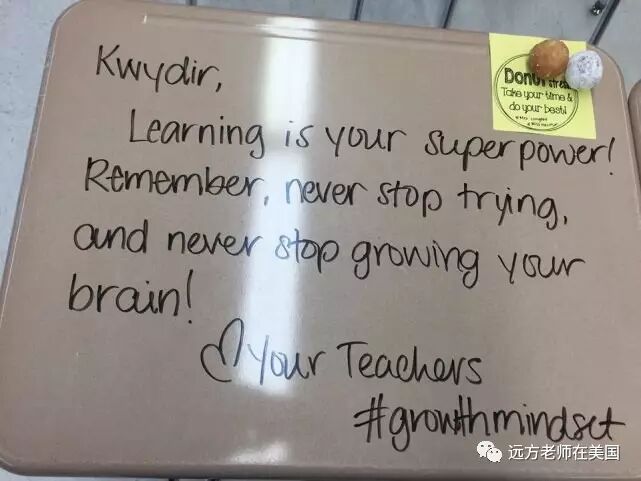 Kwydir,
Learning is your superpower!
Remember, never stop trying,
and never stop growing your
brain!
♡Your Teachers
#growthmindset
Take your time &
do your best!
远方老师在美国